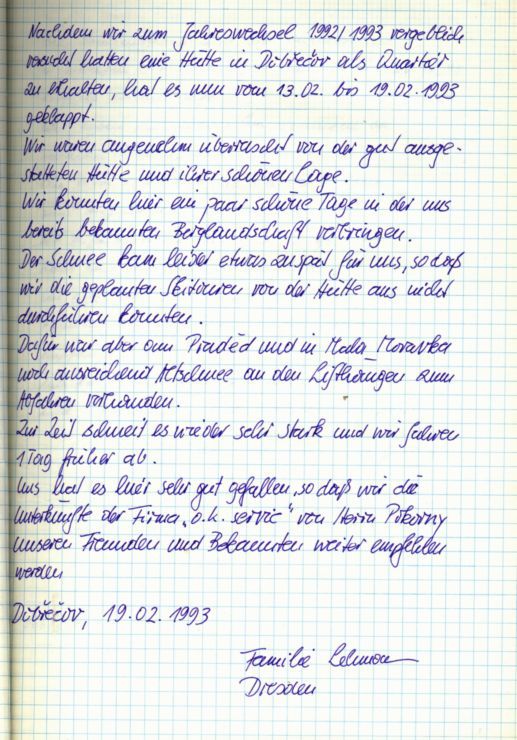 Nachdem wir zum Jahreswechsel 1992/1993 vergeblich
versucht hatten eine Hütte in Dibřečov als Quartär
zu erhalten, hat es nun vom 13.02. bis 19.02.1993
geklappt.
Wir waren angenehm überrascht von der gut ausge-
statteten Hütte und ihrer schönen Lage.
Wir konnten hier ein paar schöne Tage in der uns
bereits bekannten Berglandschaft verbringen.
Der Schnee kam leider etwas zu spät für uns, so daß
wir die geplanten Skitouren von der Hütte aus nicht
durchführen konnten.
Dafür war aber am Praděd und in Mala Moravka
noch ausreichend Altschnee an den Lifthängen zum
Abfahren vorhanden.
Zur Zeit schneit es wieder sehr stark und wir fahren
1 Tag früher ab.
Uns hat es hier sehr gut gefallen, so daß wir die
Unterkünfte der Firma „o.k. servic“ von Herrn Pokorny
unseren Freunden und Bekannten weiter empfehlen
werden
Dibřečov, 19.02.1993
Familie
Dresden